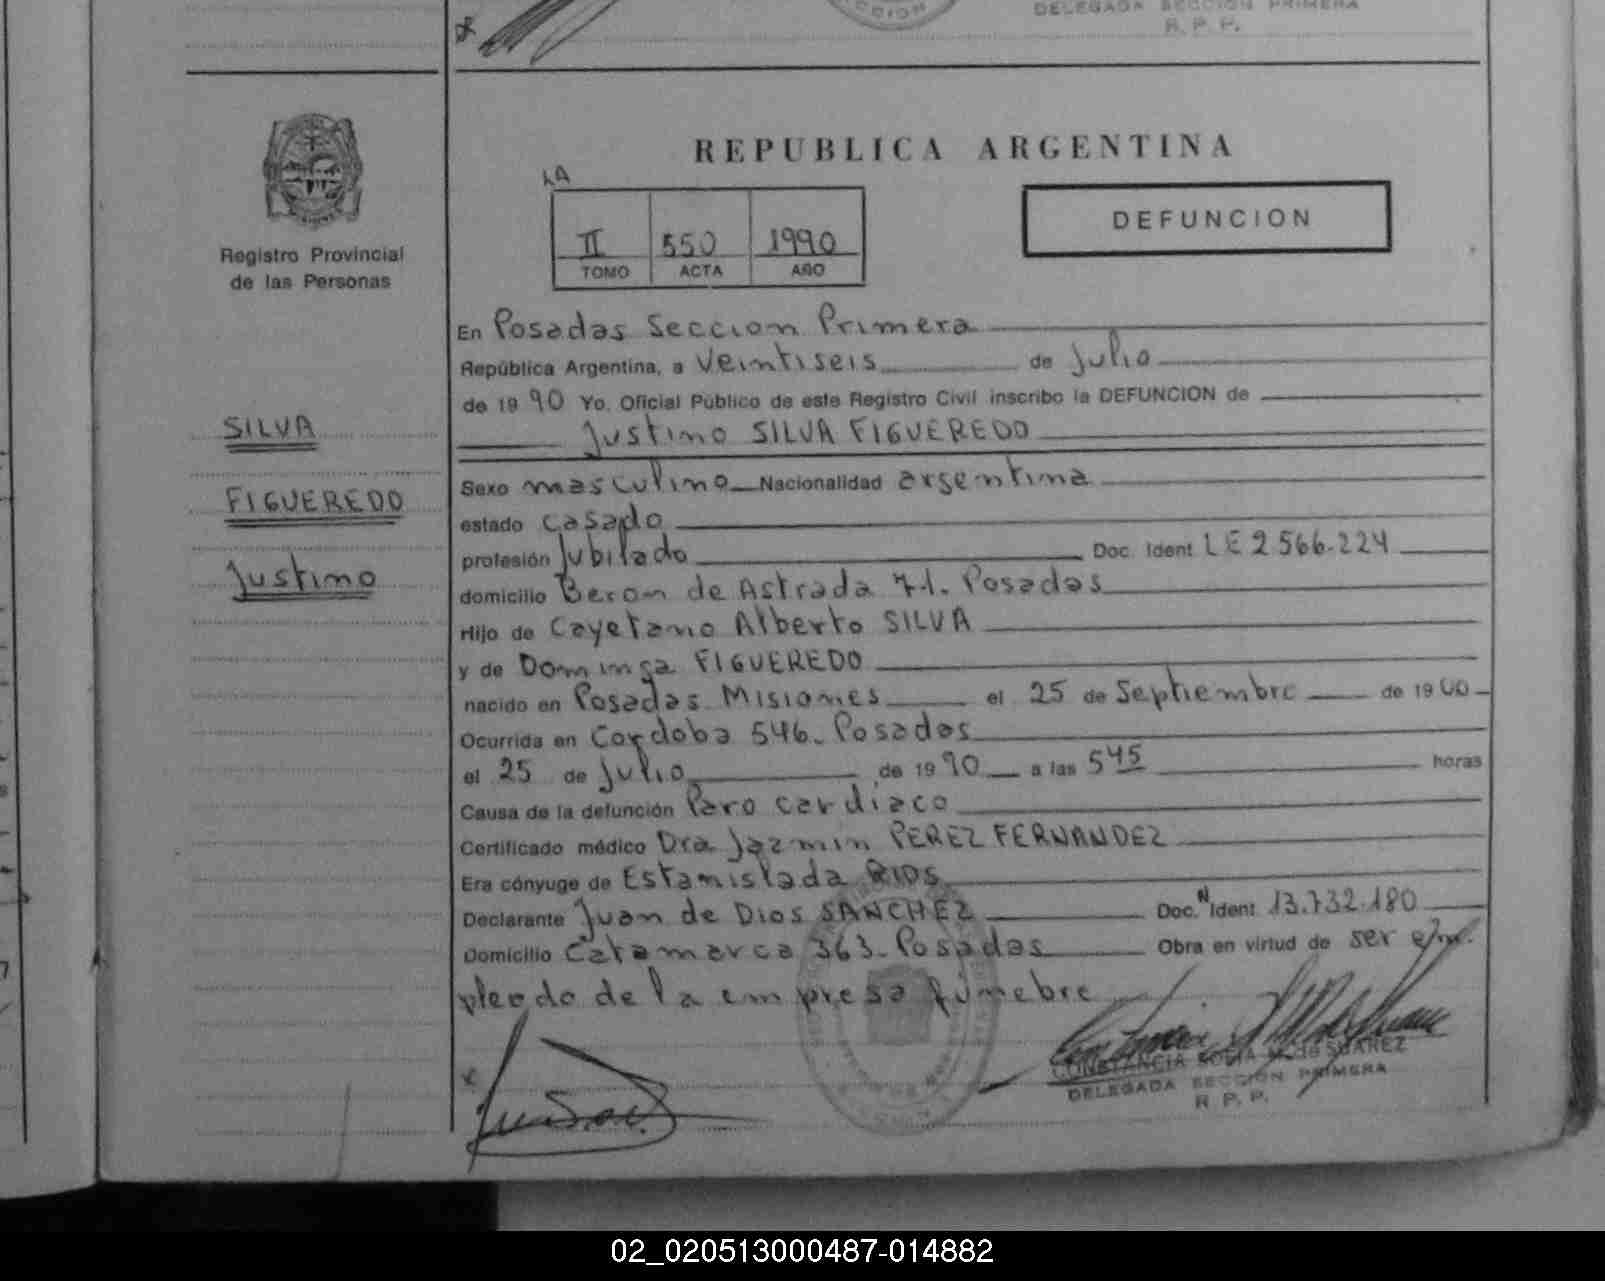 DELEGADA SECCION PRIMERA
R. P. P.
REPUBLICA ARGENTINA
DEFUNCION
II 550 1990
TOMO ACTA AÑO
Registro Provincial
de las Personas
SILVA
FIGUEREDO
Justino
En Posadas Seccion Primera
República Argentina, a Veintiseis de Julio
de 1990 Yo, Oficial Público de este Registro Civil inscribo la DEFUNCION de
Justino SILVA FIGUEREDO
Sexo masculino Nacionalidad argentina
estado casado
profesión Jubilado Doc. Ident LE 2.566.224
domicilio Beron de Astrada 71. Posadas
Hijo de Cayetano Alberto SILVA
y de Dominga FIGUEREDO
nacido en Posadas Misiones el 25 de Septiembre de 1900
Ocurrida en Cordoba 546. Posadas
el 25 de Julio de 1990 a las 545 horas
Causa de la defunción Paro cardiaco
Certificado médico Dra. Jazmin PEREZ FERNANDEZ
Era cónyuge de Estanislada RIOS
Declarante Juan de Dios SANCHEZ Doc. N Ident 13.732.180
Domicilio Catamarca 363. Posadas Obra en virtud de ser em
pleado de la empresa funebre
CONSTANCIA SOFIA M. de SUAREZ
DELEGADA SECCION PRIMERA
R. P. P.
02_020513000487-014882